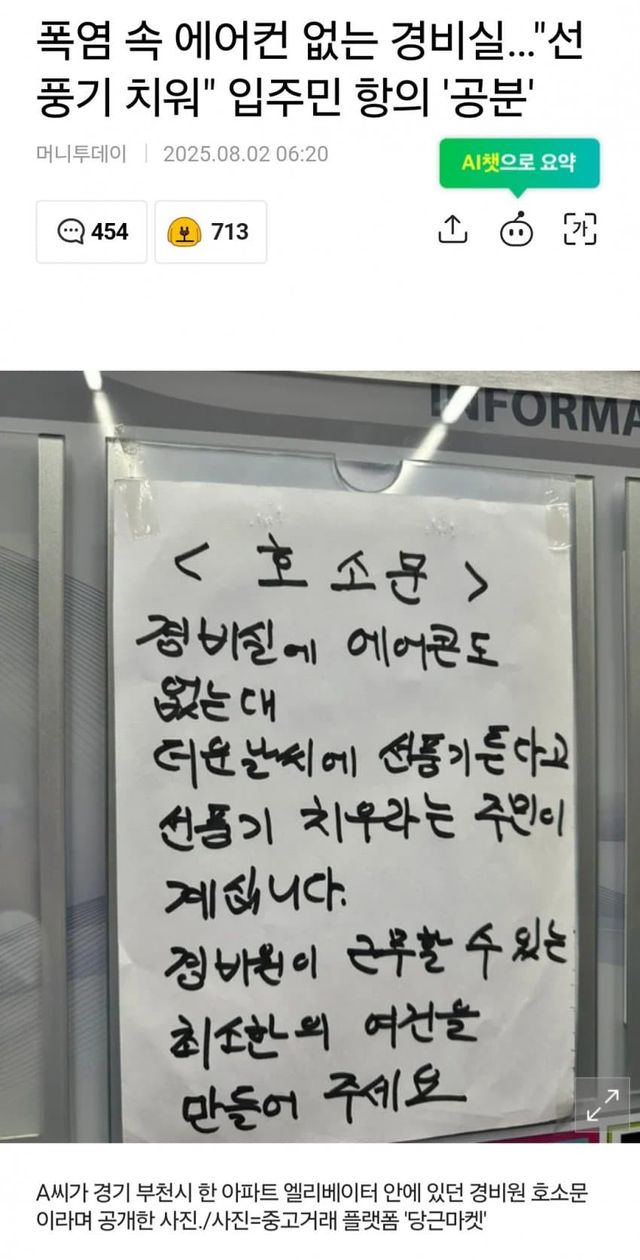 폭염 속 에어컨 없는 경비실..."선
풍기 치워" 입주민 항의 '공분'
머니투데이 2025.08.02 06:20
AI챗으로 요약
454 713
가
INFORMA
< 호 소 문 >
경비실에 에어콘도
없는대
더운 날씨에 선풍기튼다고
선풍기 치우라는 주민이
계십니다.
경비원이 근무할 수 있는
최소한의 여건을
만들어 주세요
A씨가 경기 부천시 한 아파트 엘리베이터 안에 있던 경비원 호소문
이라며 공개한 사진./사진=중고거래 플랫폼 '당근마켓'